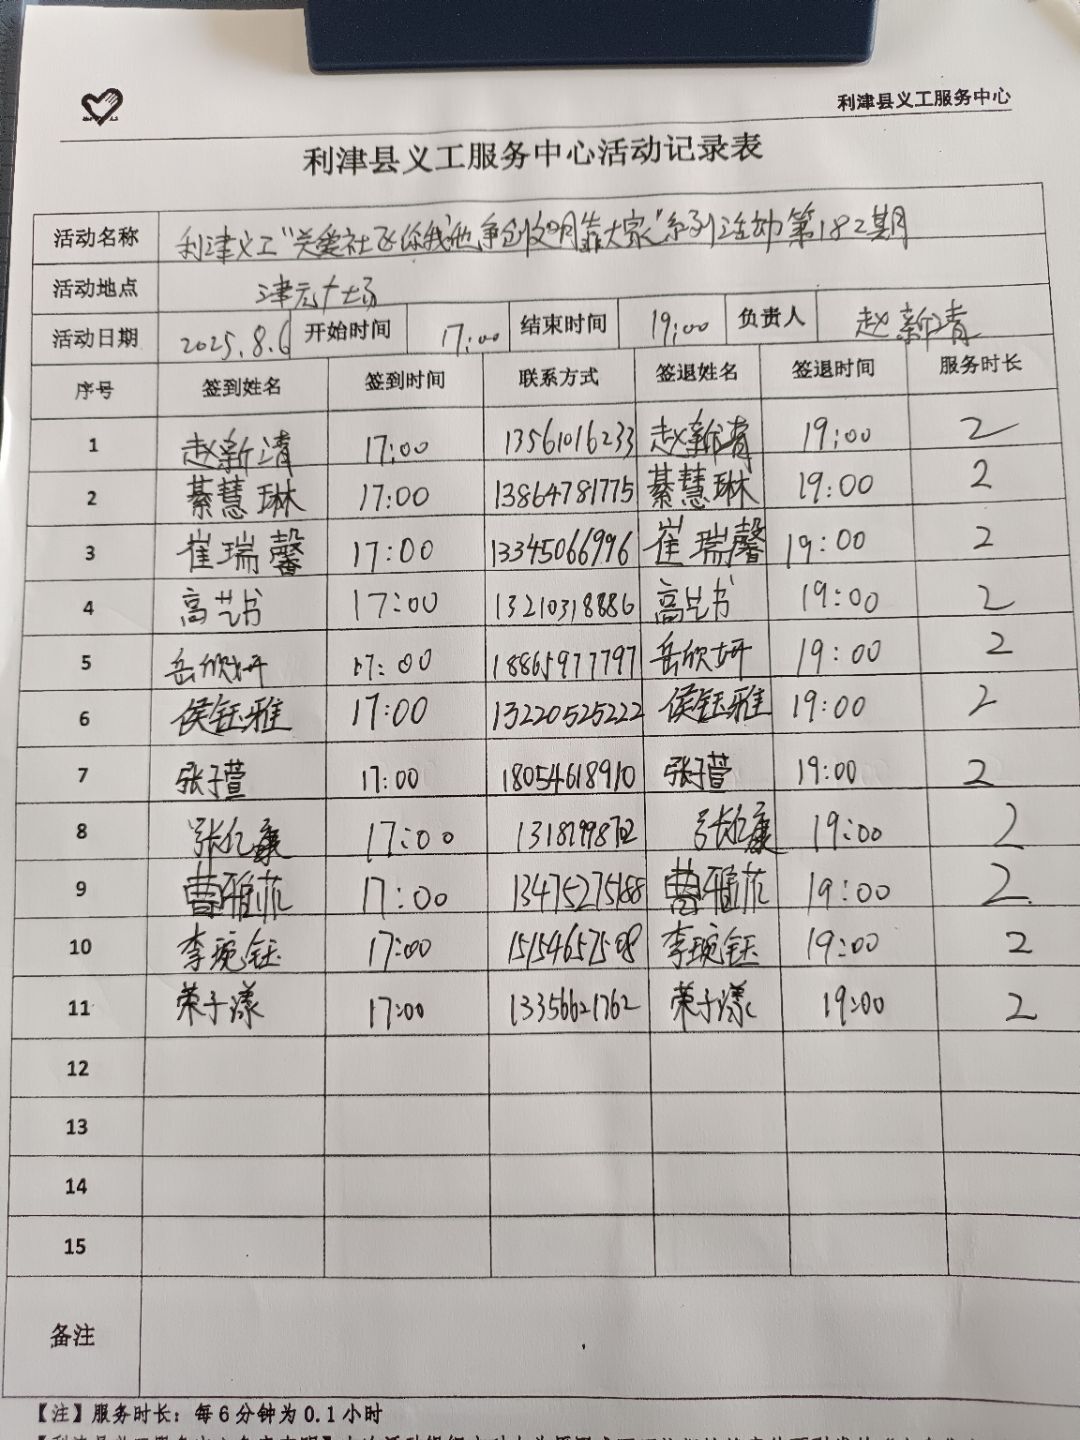 利津县义工服务中心
利津县义工服务中心活动记录表
活动名称 利津义工“关爱社区你我他 争创文明靠大家”系列活动第182期
活动地点 津苑广场
活动日期 2025.8.6 开始时间 17:00 结束时间 19:00 负责人 赵新清
序号 签到姓名 签到时间 联系方式 签退姓名 签退时间 服务时长
1 赵新清 17:00 13561016233 赵新清 19:00 2
2 綦慧琳 17:00 13864781775 綦慧琳 19:00 2
3 崔瑞馨 17:00 13345066996 崔瑞馨 19:00 2
4 高艺书 17:00 13210318886 高艺书 19:00 2
5 岳欣妍 17:00 18865977797 岳欣妍 19:00 2
6 侯钰雅 17:00 13220525222 侯钰雅 19:00 2
7 张子萱 17:00 18054618910 张子萱 19:00 2
8 张亿康 17:00 张亿康 19:00 2
9 曹雅菲 17:00 13475275188 曹雅菲 19:00 2
10 李琬钰 17:00 15154657508 李琬钰 19:00 2
11 荣子漾 17:00 13356621762 荣子漾 19:00 2
12
13
14
15
备注
【注】服务时长：每6分钟为0.1小时